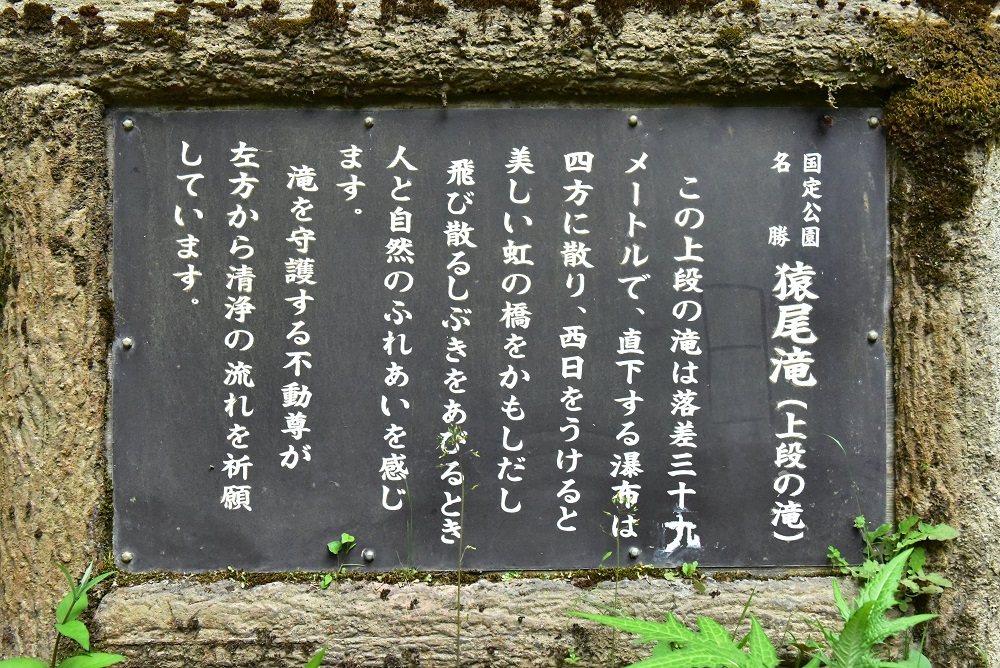 国定公園
名勝
猿尾滝(上段の滝)
この上段の滝は落差三十九
メートルで、直下する瀑布は
四方に散り、西日をうけると
美しい虹の橋をかもしだし
飛び散るしぶきをあびるとき
人と自然のふれあいを感じ
ます。
滝を守護する不動尊が
左方から清浄の流れを祈願
しています。